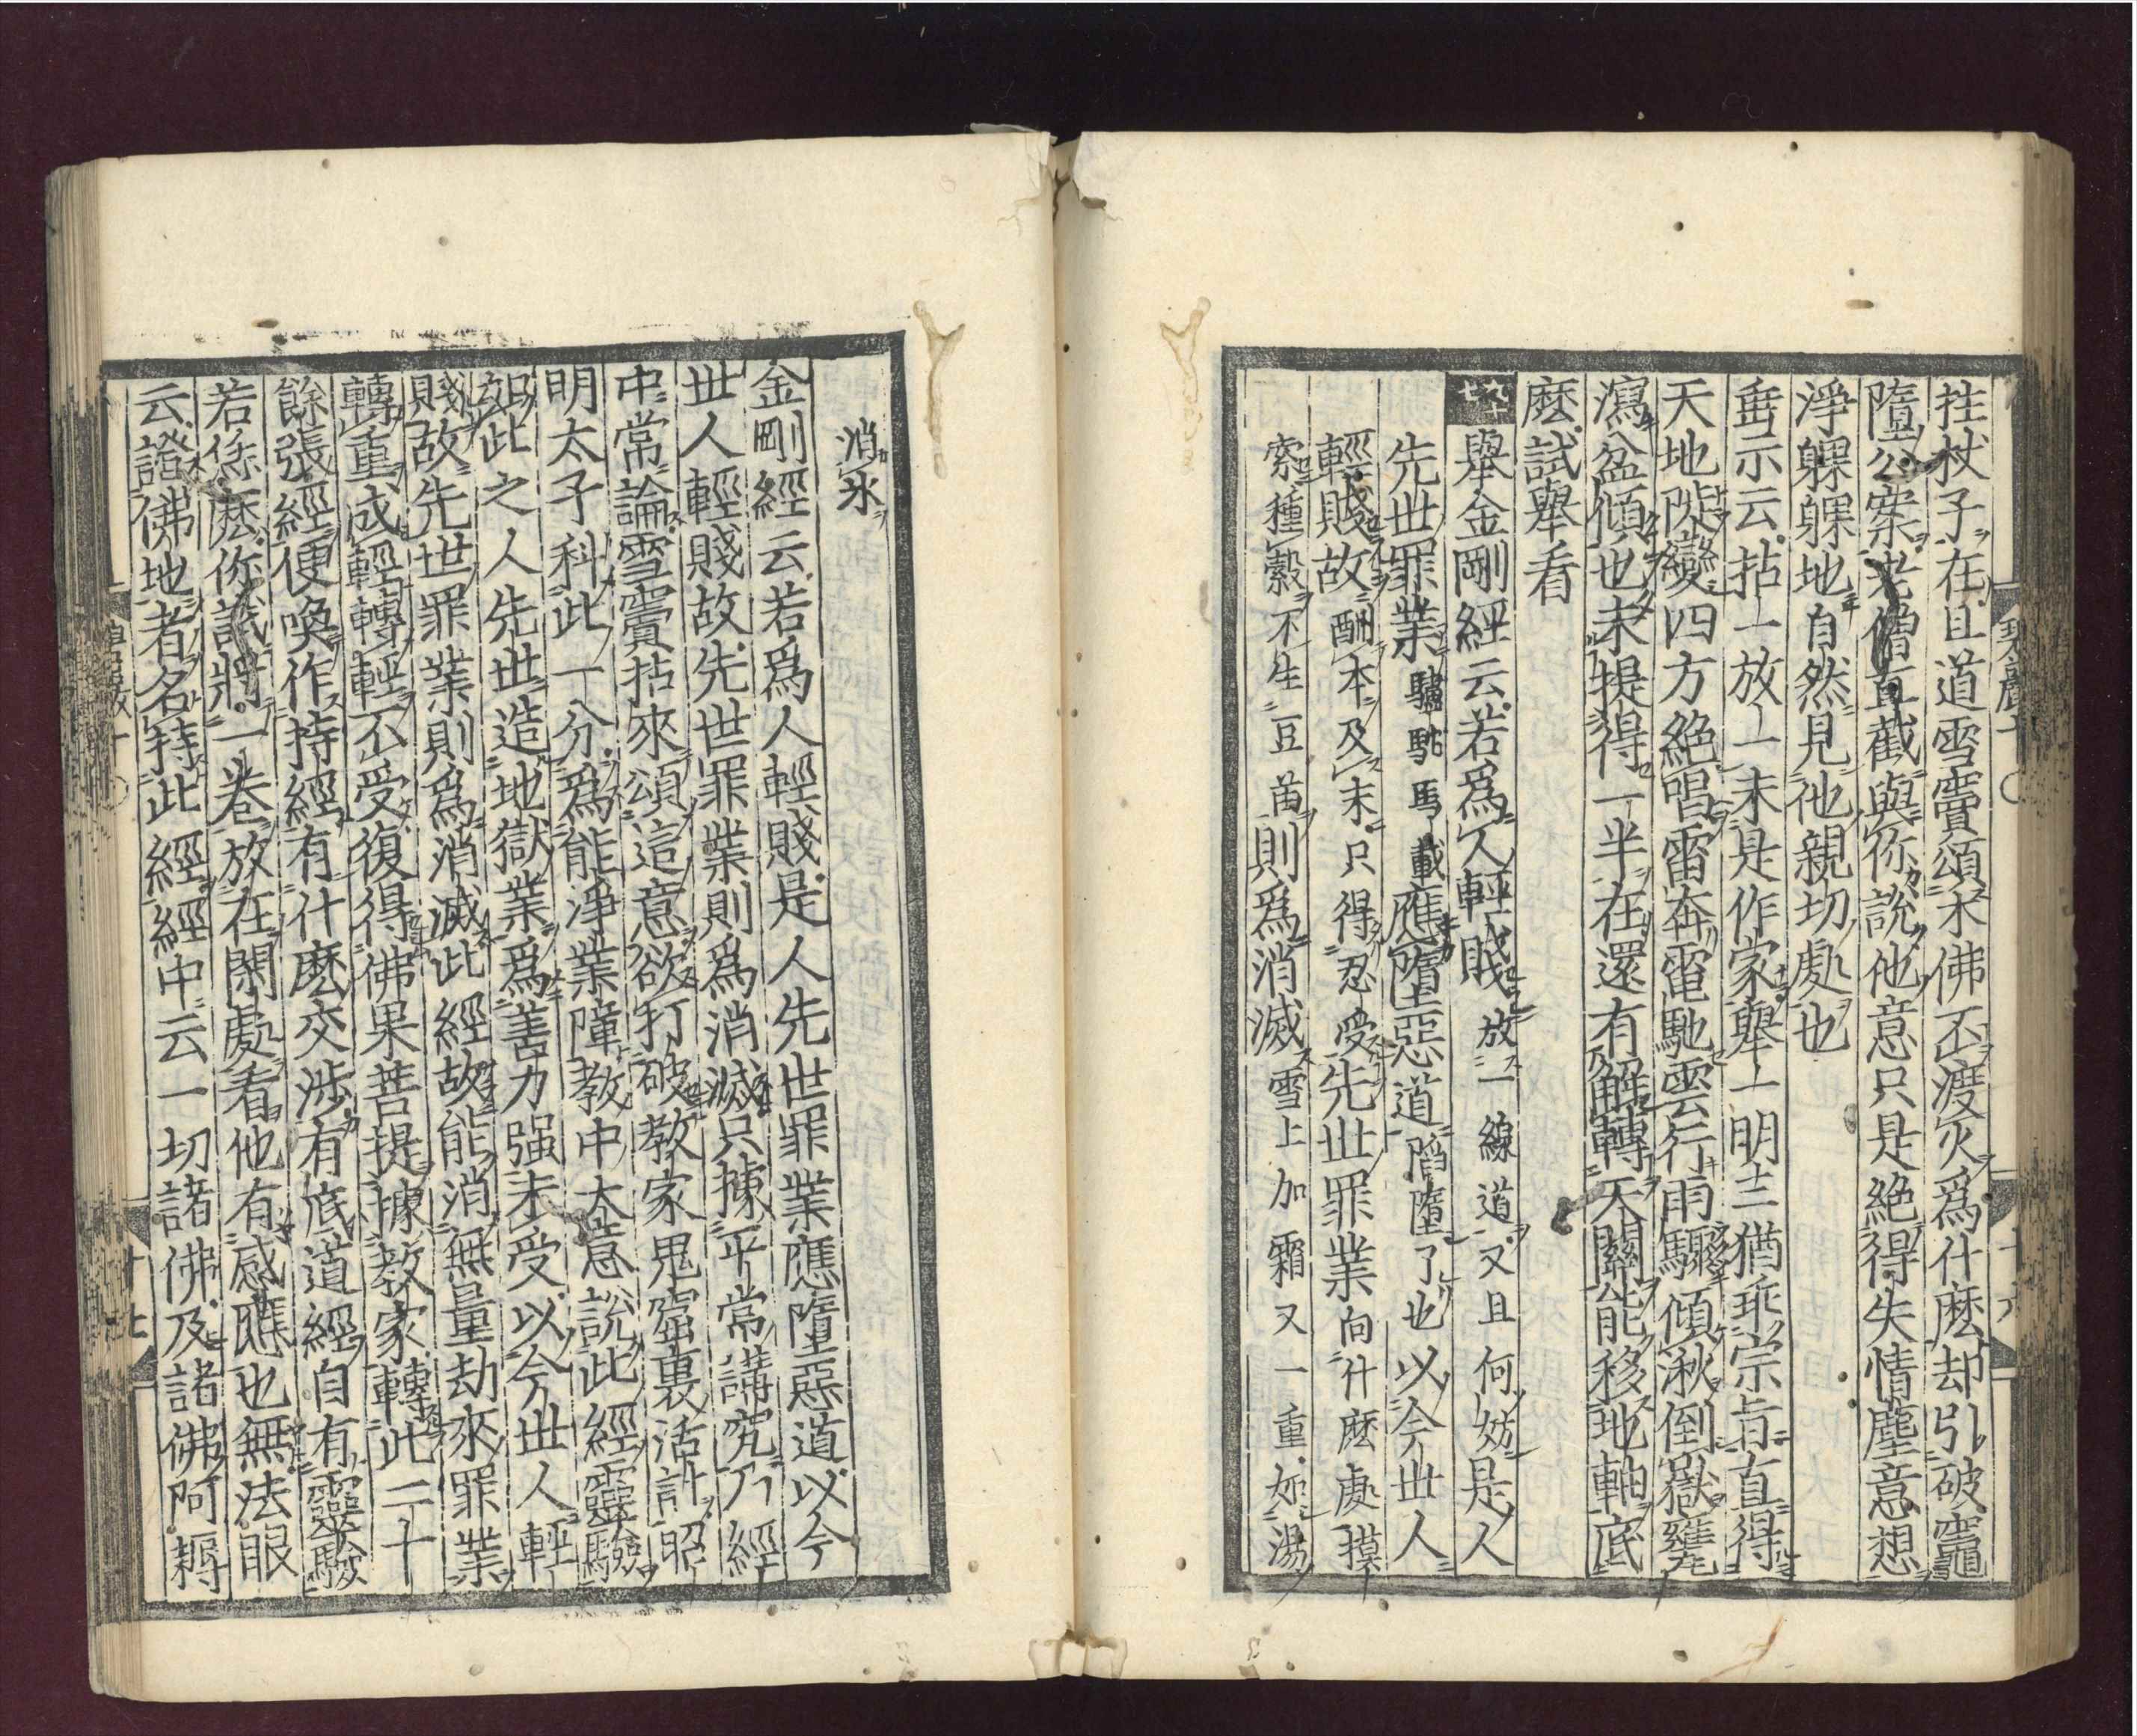 拄杖子在且道雪竇頌木佛不渡火爲什麽却引破竈
墮公案老僧直截與你說他意只是絶得失情塵意想
淨躶躶地自然見他親切處也
垂示云拈一放一未是作家舉一明三猶乖宗旨直得
天地陡變四方絶唱雷奔電馳雲行雨驟傾湫倒嶽甕
瀉盆傾也未提得一半在還有解轉天關能移地軸底
麽試舉看
九十七 舉金剛經云若爲人輕賤放一線道又且何妨是人
先世罪業驢駞馬載應墮惡道陷墮了也以今世人
輕賤故酬本及末只得忍受先世罪業向什麽處摸
索種穀不生豆苗則爲消滅雪上加霜又一重如湯
消氷
金剛經云若爲人輕賤是人先世罪業應墮惡道以今
世人輕賤故先世罪業則爲消滅只據平常講究乃經
中常論雪竇拈來頌這意欲打破教家鬼窟裏活計昭
明太子科此一分爲能淨業障教中大意說此經靈驗
如此之人先世造地獄業爲善力强未受以今世人輕
賤故先世罪業則爲消滅此經故能消無量劫來罪業
轉重成輕轉輕不受復得佛果菩提據教家轉此二十
餘張經便喚作持經有什麽交涉有底道經自有靈驗
若恁麽你試將一卷放在閑處看他有感應也無法眼
云證佛地者名持此經經中云一切諸佛及諸佛阿耨
碧巖十
十六
十七